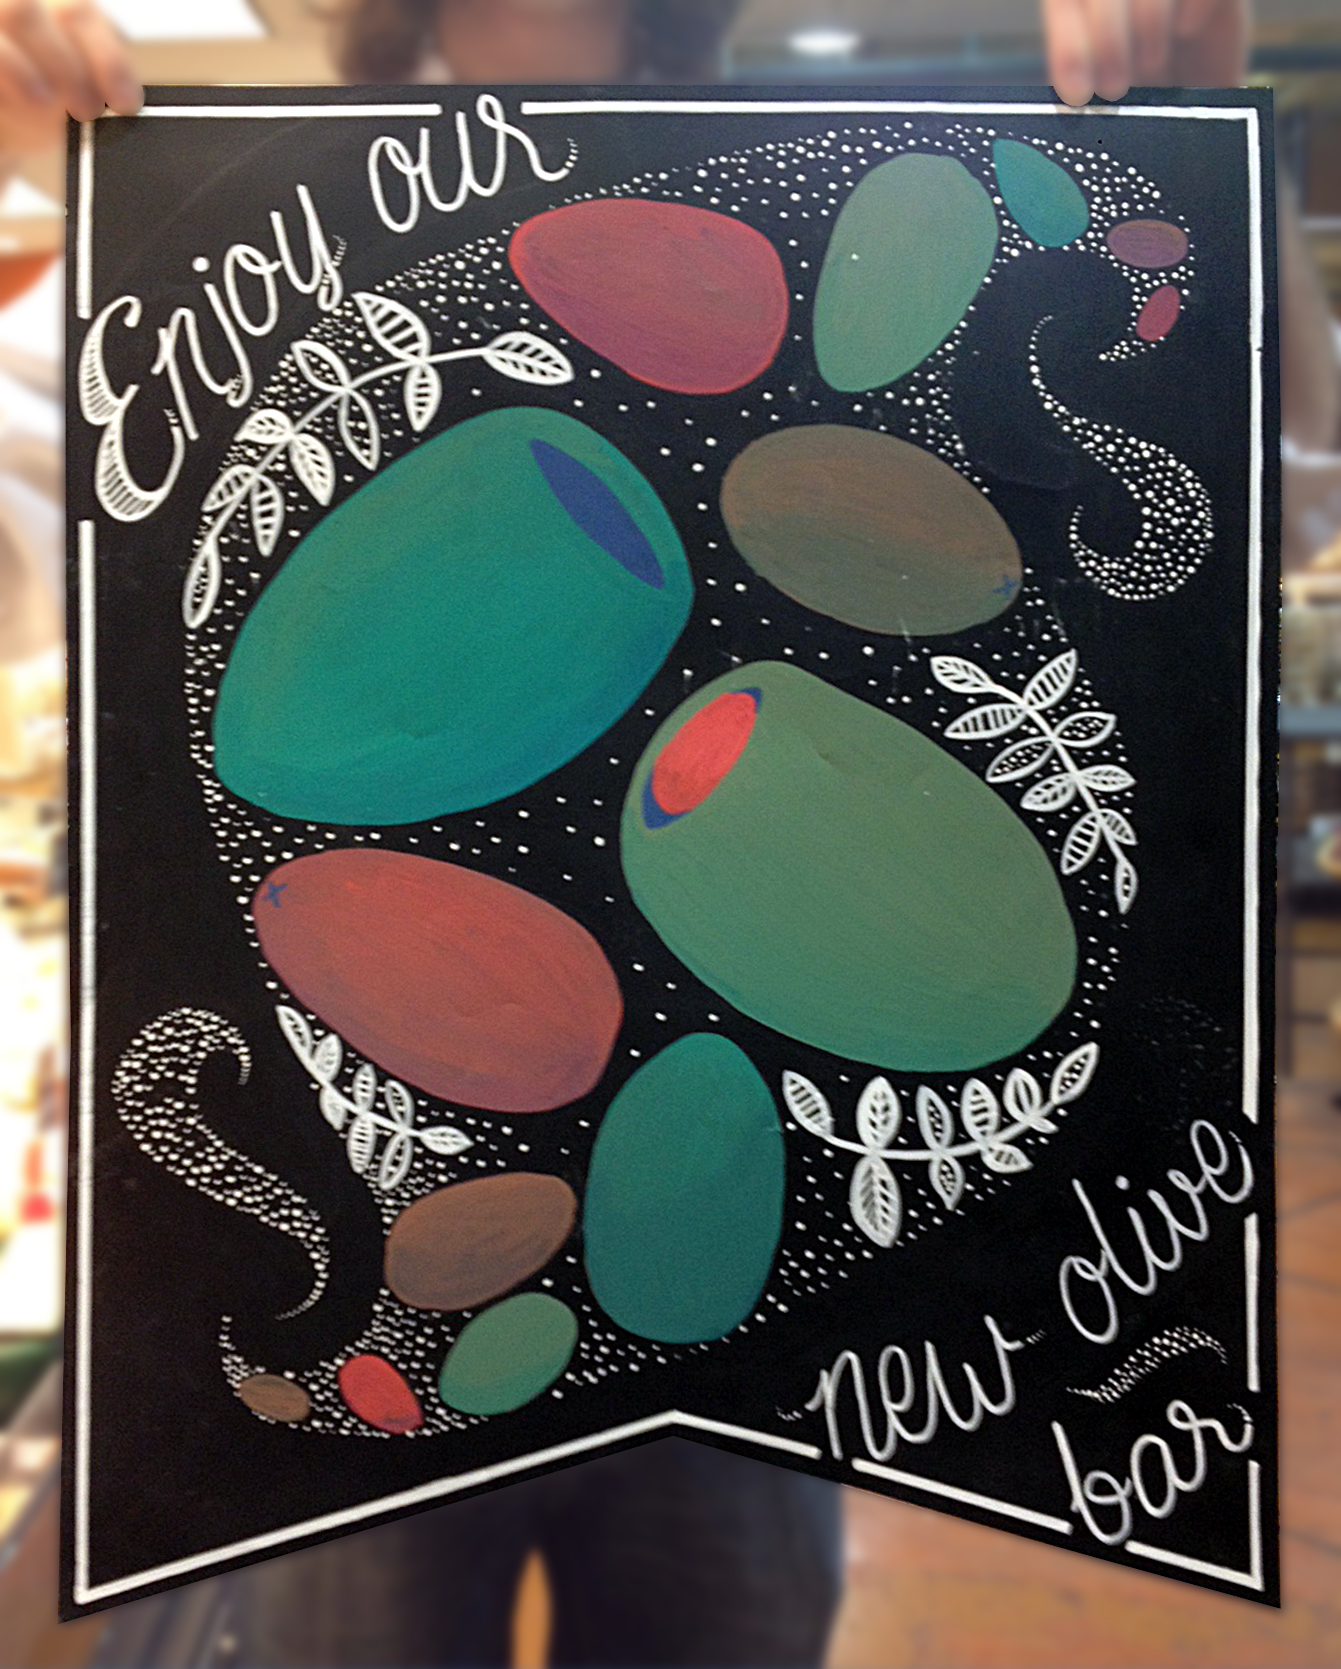 Enjoy our
new olive
bar